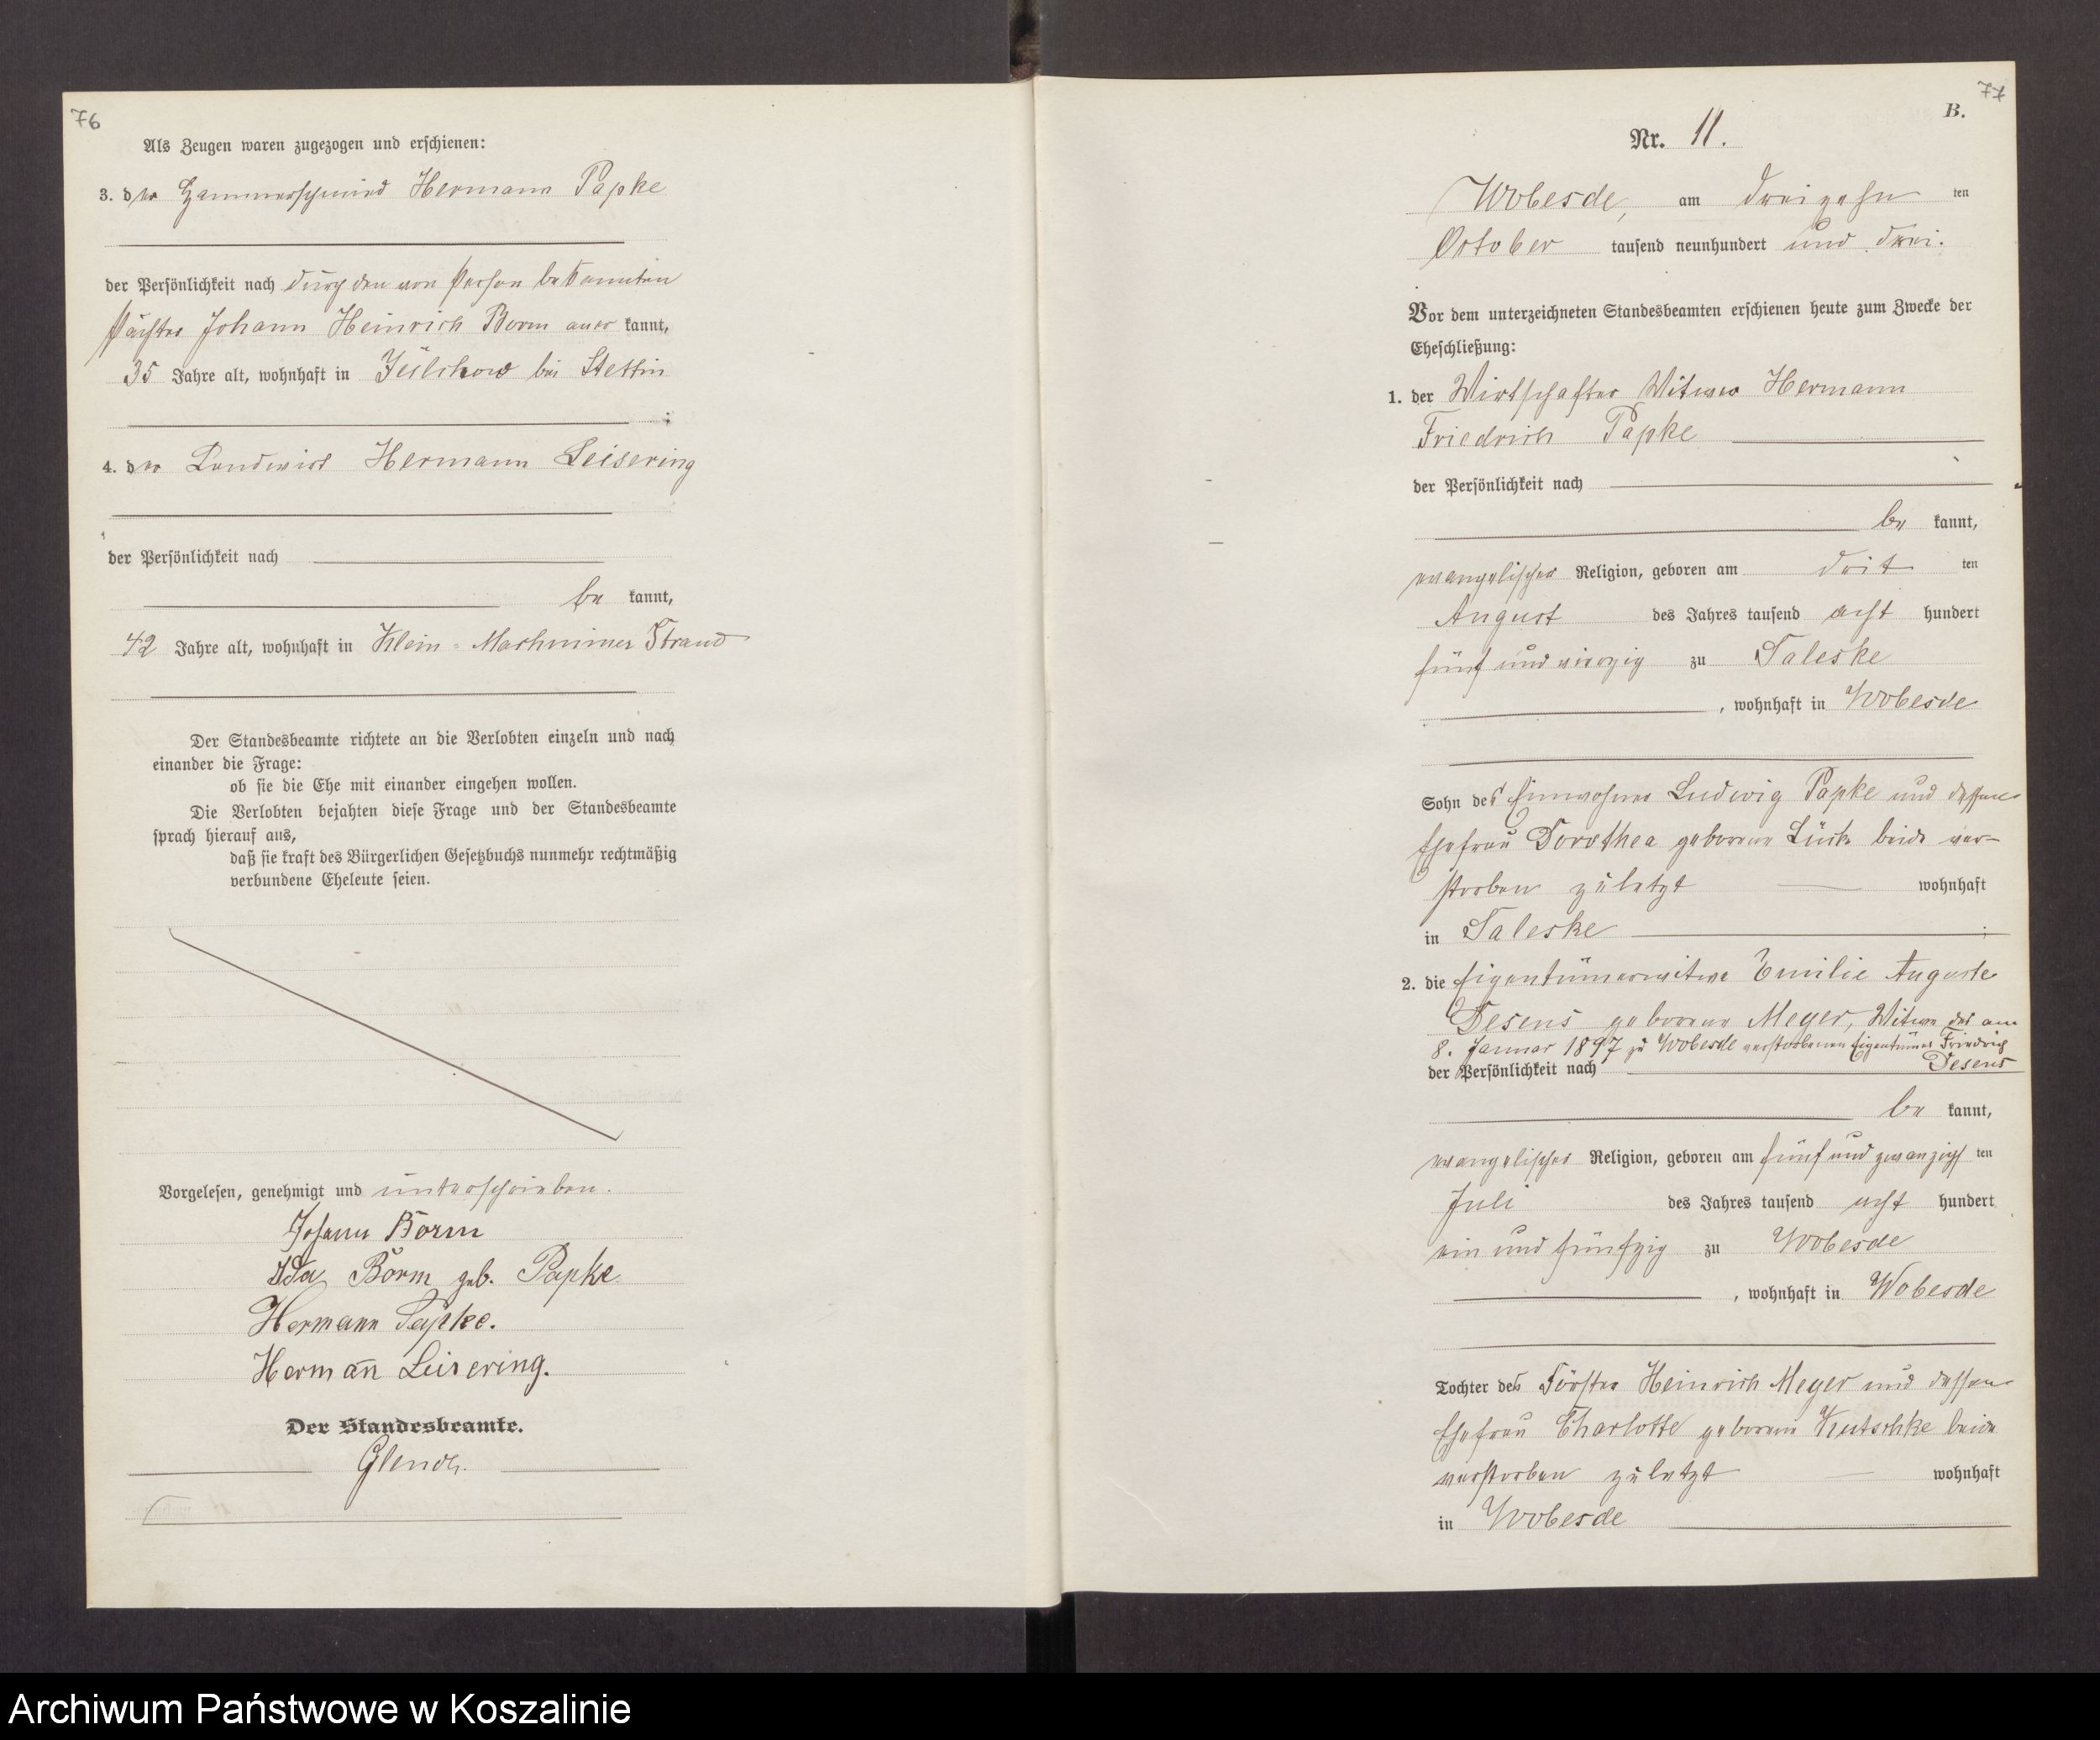 76
Als Zeugen waren zugezogen und erschienen:
3. der Hammerschmied Hermann Papke
der Persönlichkeit nach durch den von Person bekannten
Pächter Johann Heinrich Borm aner kannt,
35 Jahre alt, wohnhaft in Züllchow bei Stettin
;
4. der Landwirt Hermann Leisering
der Persönlichkeit nach
be kannt,
42 Jahre alt, wohnhaft in Klein-Machminer Strand
Der Standesbeamte richtete an die Verlobten einzeln und nach
einander die Frage:
ob sie die Ehe mit einander eingehen wollen.
Die Verlobten bejahten diese Frage und der Standesbeamte
sprach hierauf aus,
daß sie kraft des Bürgerlichen Gesetzbuchs nunmehr rechtmäßig
verbundene Eheleute seien.
Vorgelesen, genehmigt und unterschrieben.
Johann Borm
Ida Borm geb. Papke
Hermann Papke.
Hermann Leisering.
Der Standesbeamte.
77
B.
Nr. 11.
Wobesde, am dreizehn ten
October tausend neunhundert und drei.
Vor dem unterzeichneten Standesbeamten erschienen heute zum Zwecke der
Eheschließung:
1. der Wirtschafter Witwer Hermann
Friedrich Papke
der Persönlichkeit nach
be kannt,
evangelischer Religion, geboren am drit ten
August des Jahres tausend acht hundert
fünf und vierzig zu Saleske
, wohnhaft in Wobesde
Sohn des Einwohner Ludwig Papke und dessen
Ehefrau Dorothea geborene Lück beide ver-
storben zuletzt wohnhaft
in Saleske ;
2. die Eigentümerwitwe Emilie Auguste
Desens geborene Meyer, Witwe des am
8. Januar 1897 zu Wobesde verstorbenen Eigentümer Friedrich
Desens
der Persönlichkeit nach
be kannt,
evangelischer Religion, geboren am fünf und zwanzigs ten
Juli des Jahres tausend acht hundert
ein und fünfzig zu Wobesde
, wohnhaft in Wobesde
Tochter des Förster Heinrich Meyer und dessen
Ehefrau Charlotte geborene Kutschke beide
verstorben zuletzt wohnhaft
in Wobesde
Archiwum Państwowe w Koszalinie